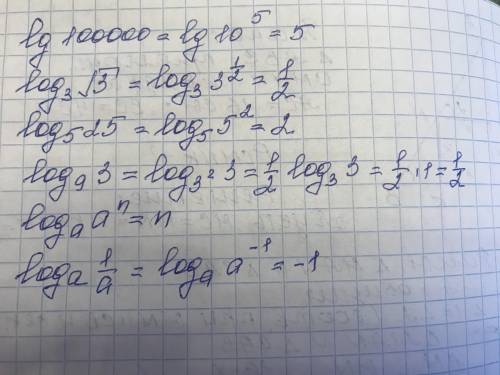 lg 100000 = lg 10⁵ = 5
log₃ √3 = log₃ 3^(1/2) = 1/2
log₅ 25 = log₅ 5² = 2
log₉ 3 = log_(3²) 3 = 1/2 log₃ 3 = 1/2 · 1 = 1/2
logₐ aⁿ = n
logₐ 1/a = logₐ a⁻¹ = -1